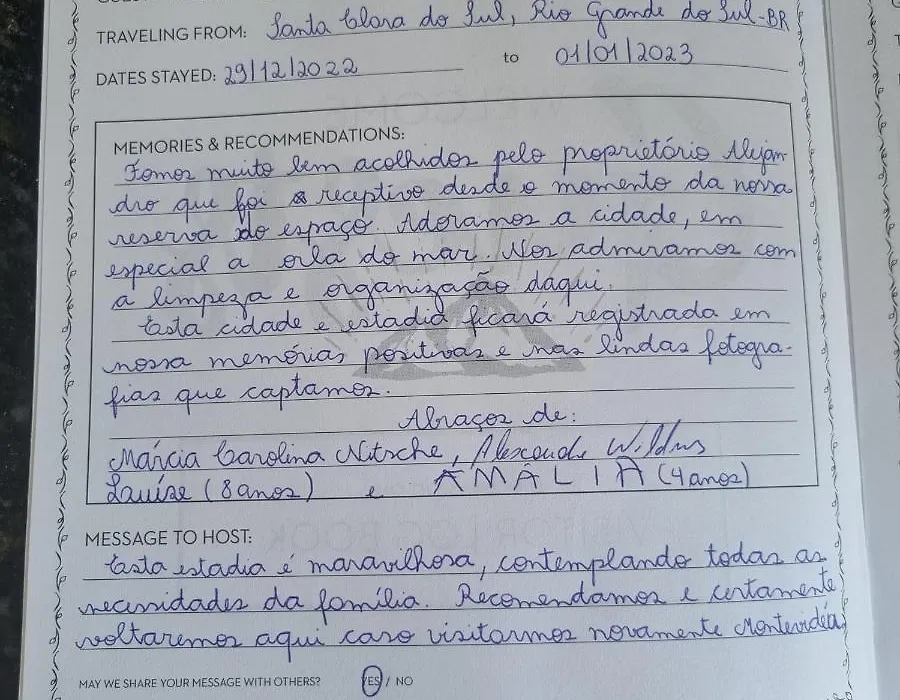 TRAVELING FROM: Santa Clara do Sul, Rio Grande do Sul-BR
DATES STAYED: 29/12/2022 to 01/01/2023
MEMORIES & RECOMMENDATIONS:
Fomos muito bem acolhidos pelo proprietório Alejan
dro que foi receptivo desde o momento da nossa
reserva do espaço. Adoramos a cidade, em
especial a orla do mar. Nos admiramos com
a limpeza e organização daqui.
Esta cidade e estadia ficará registrada em
nossa memórias positivas e nas lindas fotogra-
fias que captamos.
Abraços de:
Márcia Carolina Nitsche, Alexandre
Louise (8 anos) e AMÁLIA (4 anos)
MESSAGE TO HOST:
Esta estadia é maravilhosa, contemplando todas as
necessidades da família. Recomendamos e certamente
voltaremos aqui caso visitarmos novamente Montevidéu
MAY WE SHARE YOUR MESSAGE WITH OTHERS? YES / NO